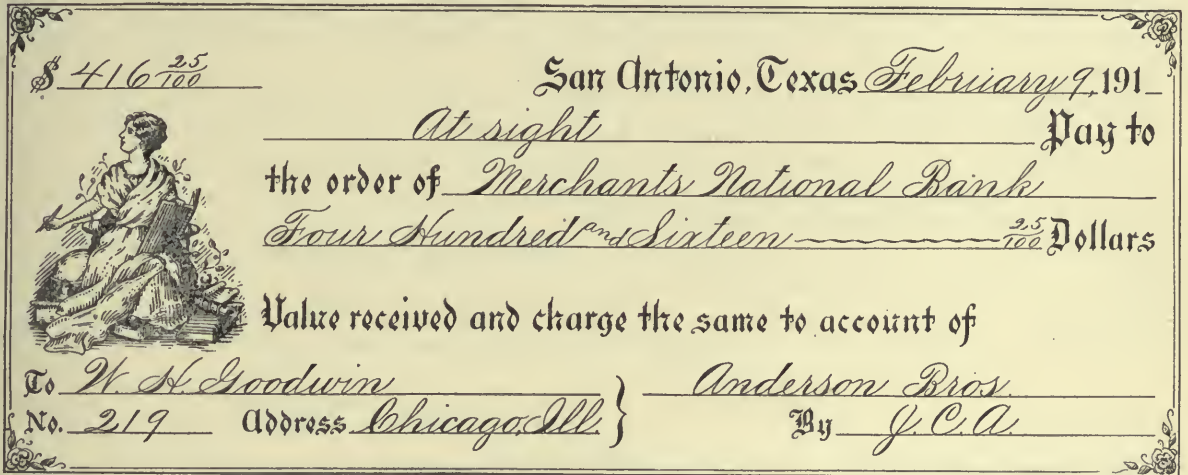 $ 416 25/100 San Antonio, Texas February 9, 191_
At sight Pay to
the order of Merchants National Bank
Four Hundred and Sixteen 25/100 Dollars
Value received and charge the same to account of
To W. H. Goodwin Anderson Bros.
No. 219 Address Chicago, Ill. By J. C. A.